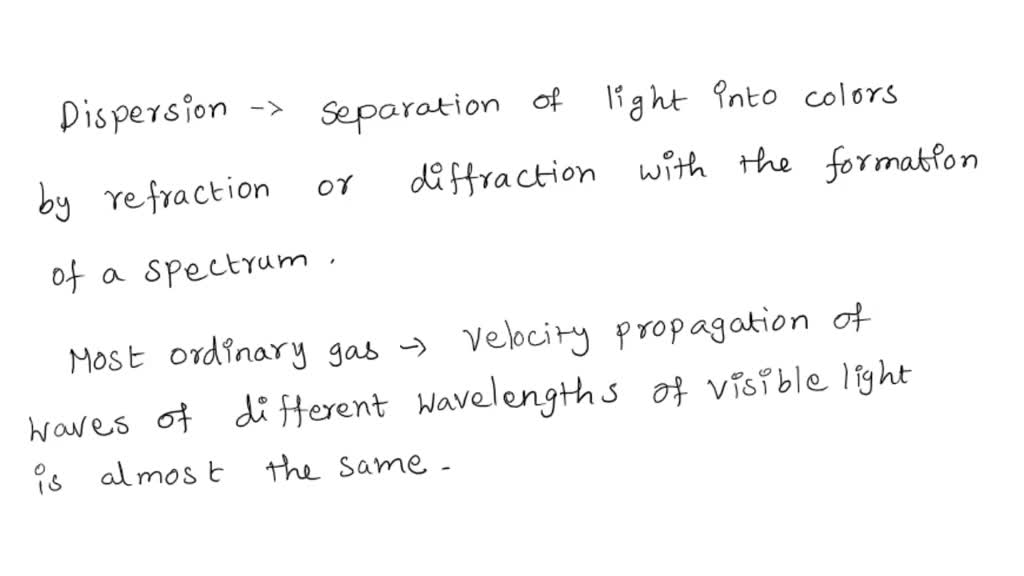 Dispersion -> separation of light into colors
by refraction or diffraction with the formation
of a spectrum.
Most ordinary gas → velocity propagation of
waves of different wavelengths of visible light
is almost the same -